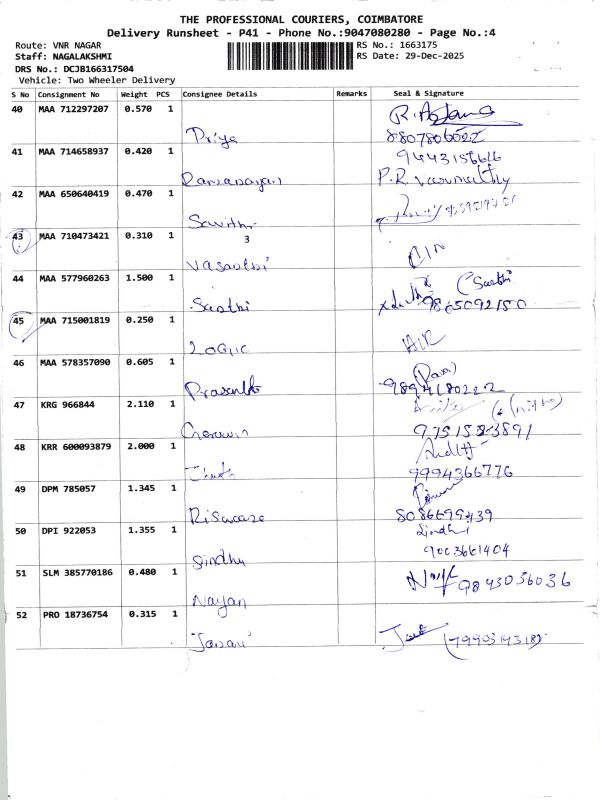 THE PROFESSIONAL COURIERS, COIMBATORE
Delivery Runsheet - P41 - Phone No.:9047080280 - Page No.:4
Route: VNR NAGAR
RS No.: 1663175
Staff: NAGALAKSHMI
RS Date: 29-Dec-2025
DRS No.: DCJB166317504
Vehicle: Two Wheeler Delivery
S No Consignment No Weight PCS Consignee Details Remarks Seal & Signature
40 MAA 712297207 0.570 1
Priya 8807806022
41 MAA 714658937 0.420 1 9443156616
42 MAA 650640419 0.470 1
43 MAA 710473421 0.310 1 3
Vasanthi
44 MAA 577960263 1.500 1
Santhi 9865092150
45 MAA 715001819 0.250 1
LOGIC
46 MAA 578357090 0.605 1
Prasanth 9894180222
47 KRG 966844 2.110 1
9751523891
48 KRR 600093879 2.000 1
9994366776
49 DPM 785057 1.345 1
8086699439
50 DPI 922053 1.355 1 Sindhu
Sindhu 9003661404
51 SLM 385770186 0.480 1 9843036036
Nayan
52 PRO 18736754 0.315 1
Janani